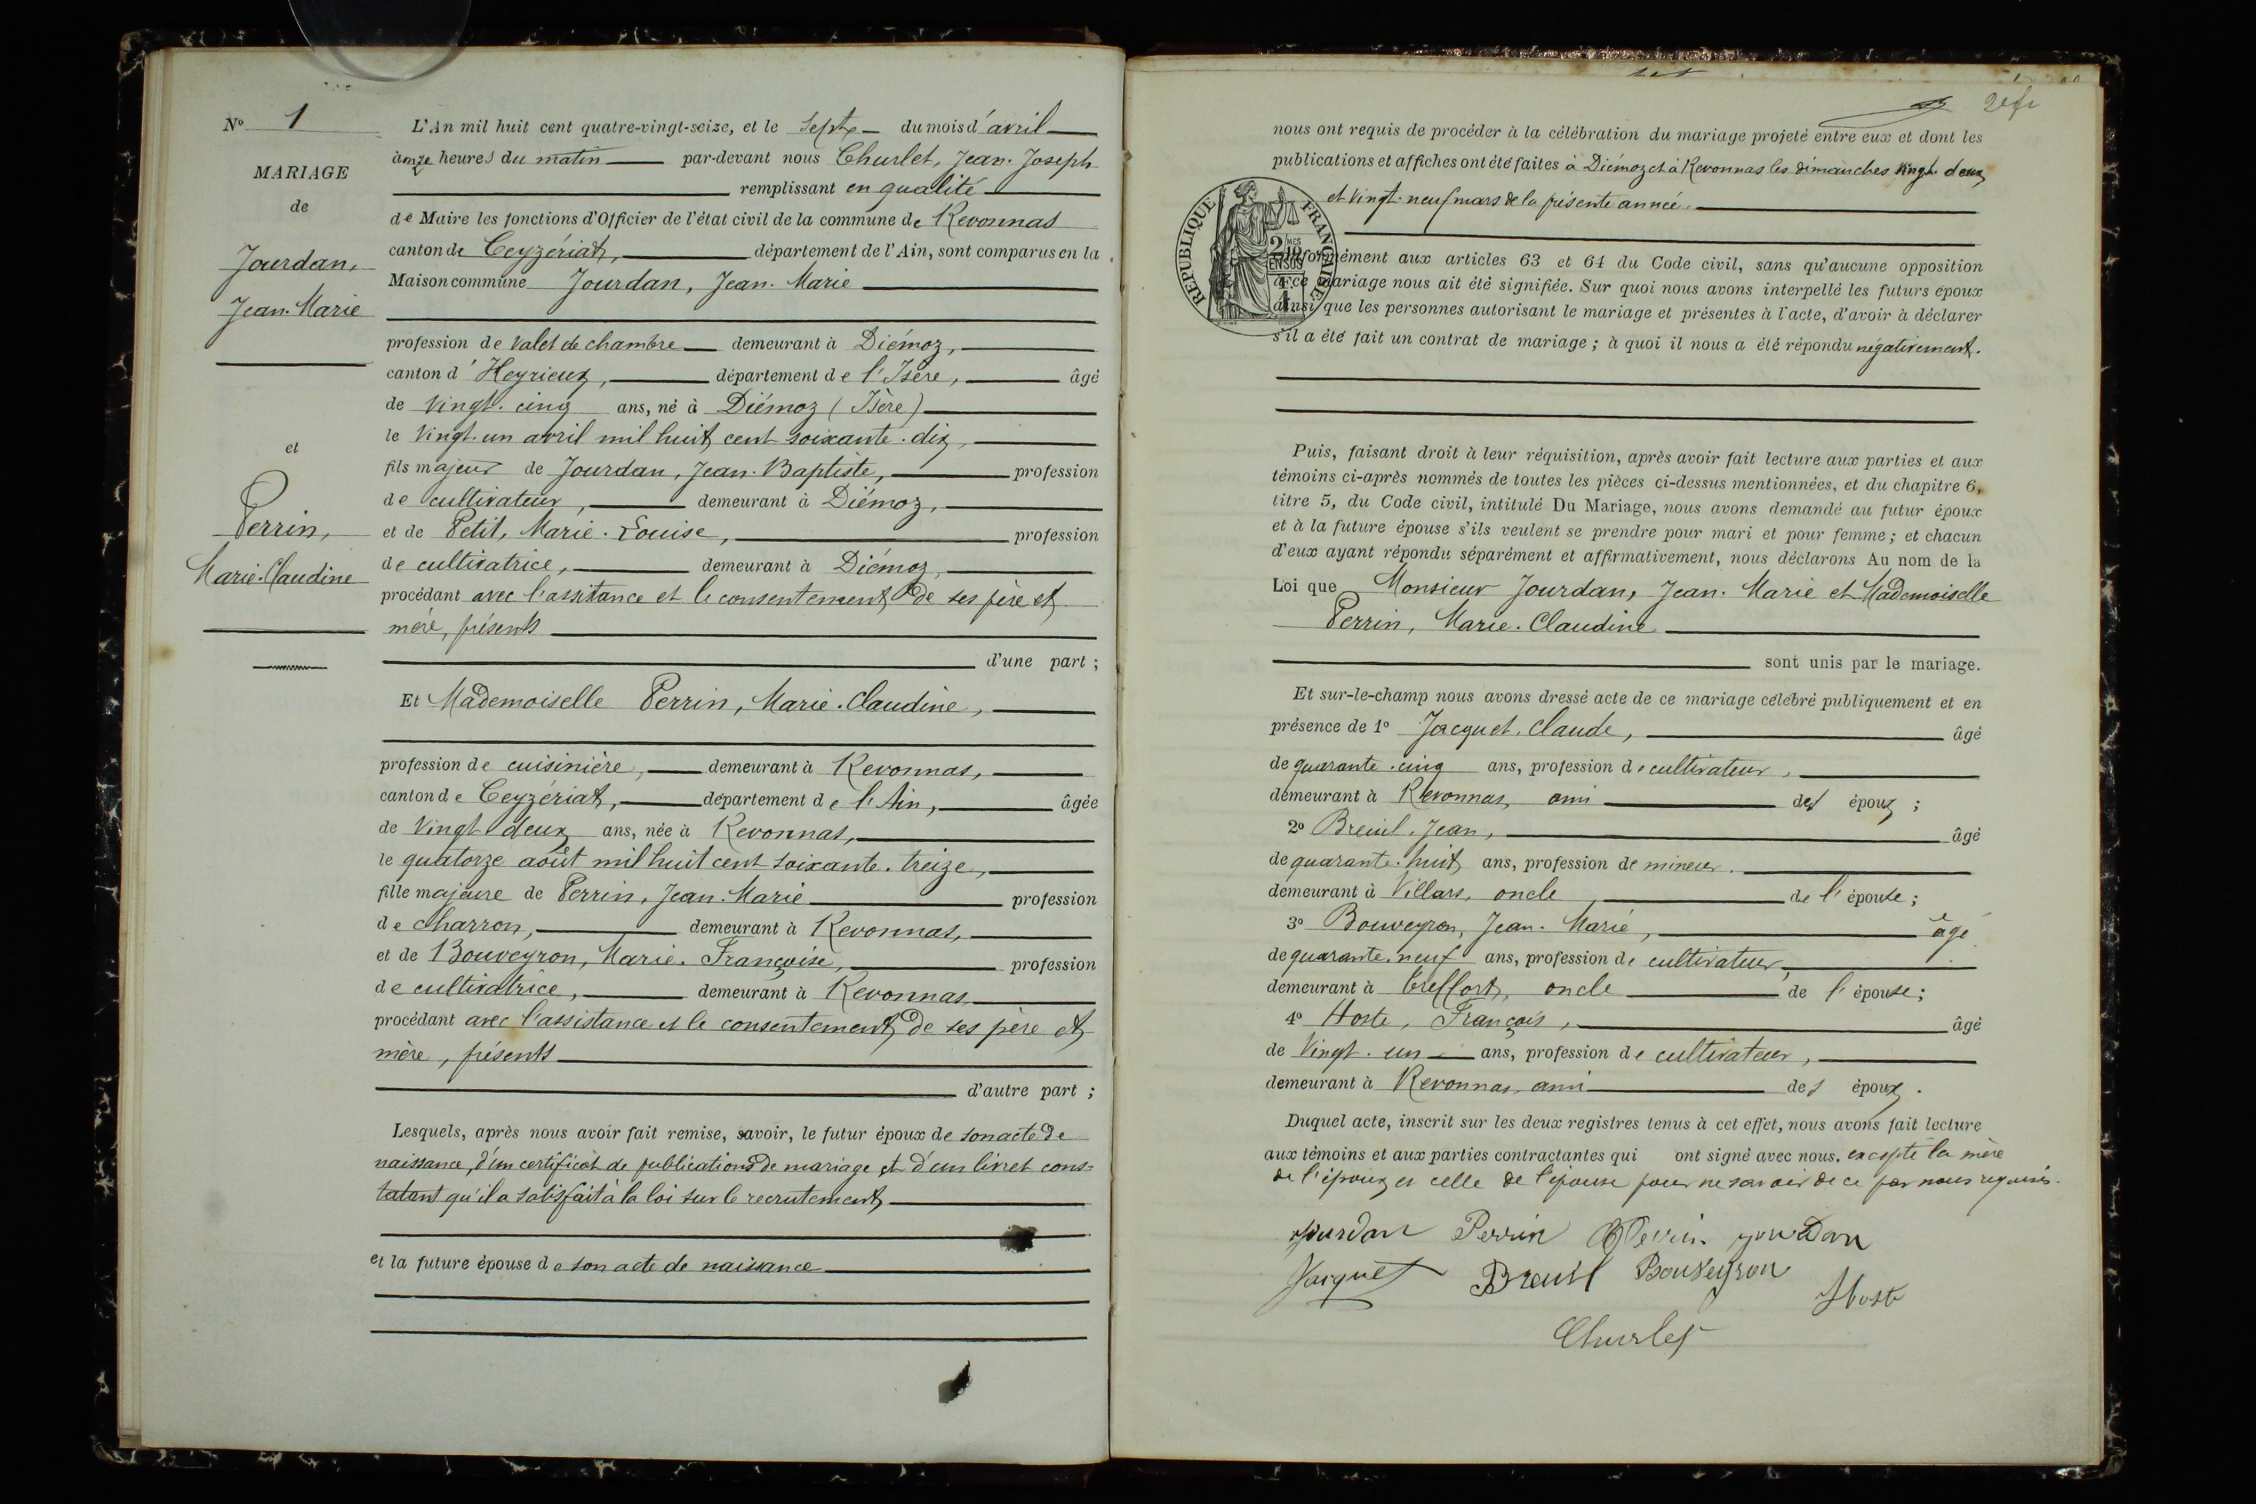 N° 1
MARIAGE
de
Jourdan,
Jean-Marie
et
Perrin,
Marie-Claudine
L'An mil huit cent quatre-vingt-seize, et le sept du mois d'avril
à onze heures du matin par-devant nous Churlet, Jean-Joseph
remplissant en qualité
de Maire les fonctions d'Officier de l'état civil de la commune de Revonnas
canton de Ceyzériat, département de l'Ain, sont comparus en la
Maison commune Jourdan, Jean-Marie
profession de valet de chambre demeurant à Diémoz,
canton d'Heyrieux, département de l'Isère, âgé
de vingt-cinq ans, né à Diémoz (Isère)
le vingt-un avril mil huit cent soixante-dix,
fils majeur de Jourdan, Jean-Baptiste, profession
de cultivateur, demeurant à Diémoz,
et de Petit, Marie-Louise, profession
de cultivatrice, demeurant à Diémoz,
procédant avec l'assistance et le consentement de ses père et
mère, présents
d'une part ;
Et Mademoiselle Perrin, Marie-Claudine,
profession de cuisinière, demeurant à Revonnas,
canton de Ceyzériat, département de l'Ain, âgée
de vingt-deux ans, née à Revonnas,
le quatorze août mil huit cent soixante-treize,
fille majeure de Perrin, Jean-Marie profession
de charron, demeurant à Revonnas,
et de Bouveyron, Marie-Françoise, profession
de cultivatrice, demeurant à Revonnas
procédant avec l'assistance et le consentement de ses père et
mère, présents
d'autre part ;
Lesquels, après nous avoir fait remise, savoir, le futur époux de son acte de
naissance, d'un certificat de publications de mariage et d'un livret cons=
tatant qu'il a satisfait à la loi sur le recrutement
et la future épouse de son acte de naissance
nous ont requis de procéder à la célébration du mariage projeté entre eux et dont les
publications et affiches ont été faites à Diémoz et à Revonnas les dimanches vingt-deux
et vingt-neuf mars de la présente année.
RÉPUBLIQUE FRANÇAISE
conformément aux articles 63 et 64 du Code civil, sans qu'aucune opposition
à ce mariage nous ait été signifiée. Sur quoi nous avons interpellé les futurs époux
ainsi que les personnes autorisant le mariage et présentes à l'acte, d'avoir à déclarer
s'il a été fait un contrat de mariage ; à quoi il nous a été répondu négativement.
Puis, faisant droit à leur réquisition, après avoir fait lecture aux parties et aux
témoins ci-après nommés de toutes les pièces ci-dessus mentionnées, et du chapitre 6,
titre 5, du Code civil, intitulé Du Mariage, nous avons demandé au futur époux
et à la future épouse s'ils veulent se prendre pour mari et pour femme ; et chacun
d'eux ayant répondu séparément et affirmativement, nous déclarons Au nom de la
Loi que Monsieur Jourdan, Jean-Marie et Mademoiselle
Perrin, Marie-Claudine
sont unis par le mariage.
Et sur-le-champ nous avons dressé acte de ce mariage célébré publiquement et en
présence de 1° Jacquet, Claude, âgé
de quarante-cinq ans, profession de cultivateur,
demeurant à Revonnas, ami des époux ;
2° Breuil, Jean, âgé
de quarante-huit ans, profession de mineur.
demeurant à Villars, oncle de l'épouse ;
3° Bouveyron, Jean-Marie, âgé
de quarante-neuf ans, profession de cultivateur,
demeurant à Treffort, oncle de l'épouse ;
4° Hoste, François, âgé
de vingt-un ans, profession de cultivateur,
demeurant à Revonnas, ami des époux.
Duquel acte, inscrit sur les deux registres tenus à cet effet, nous avons fait lecture
aux témoins et aux parties contractantes qui ont signé avec nous, excepté la mère
de l'époux et celle de l'épouse pour ne savoir de ce par nous requises.
Jourdan Perrin Perrin Jourdan
Jacquet Breuil Bouveyron Hoste
Churlet